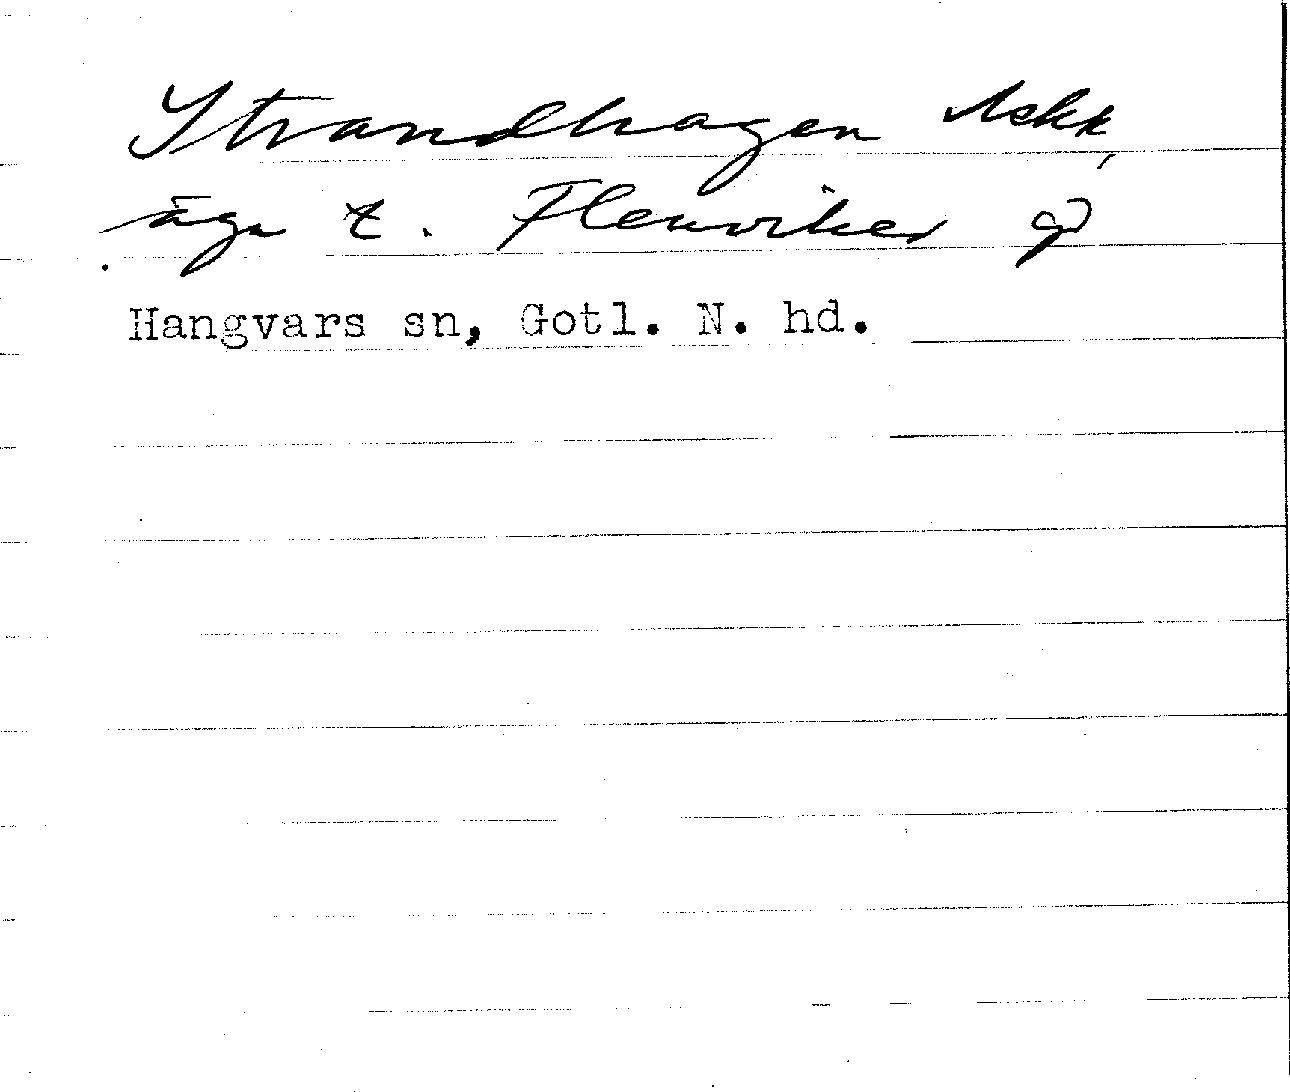 Strandhagen
äga t. Flenviken
Hangvars sn, Gotl. N. hd.